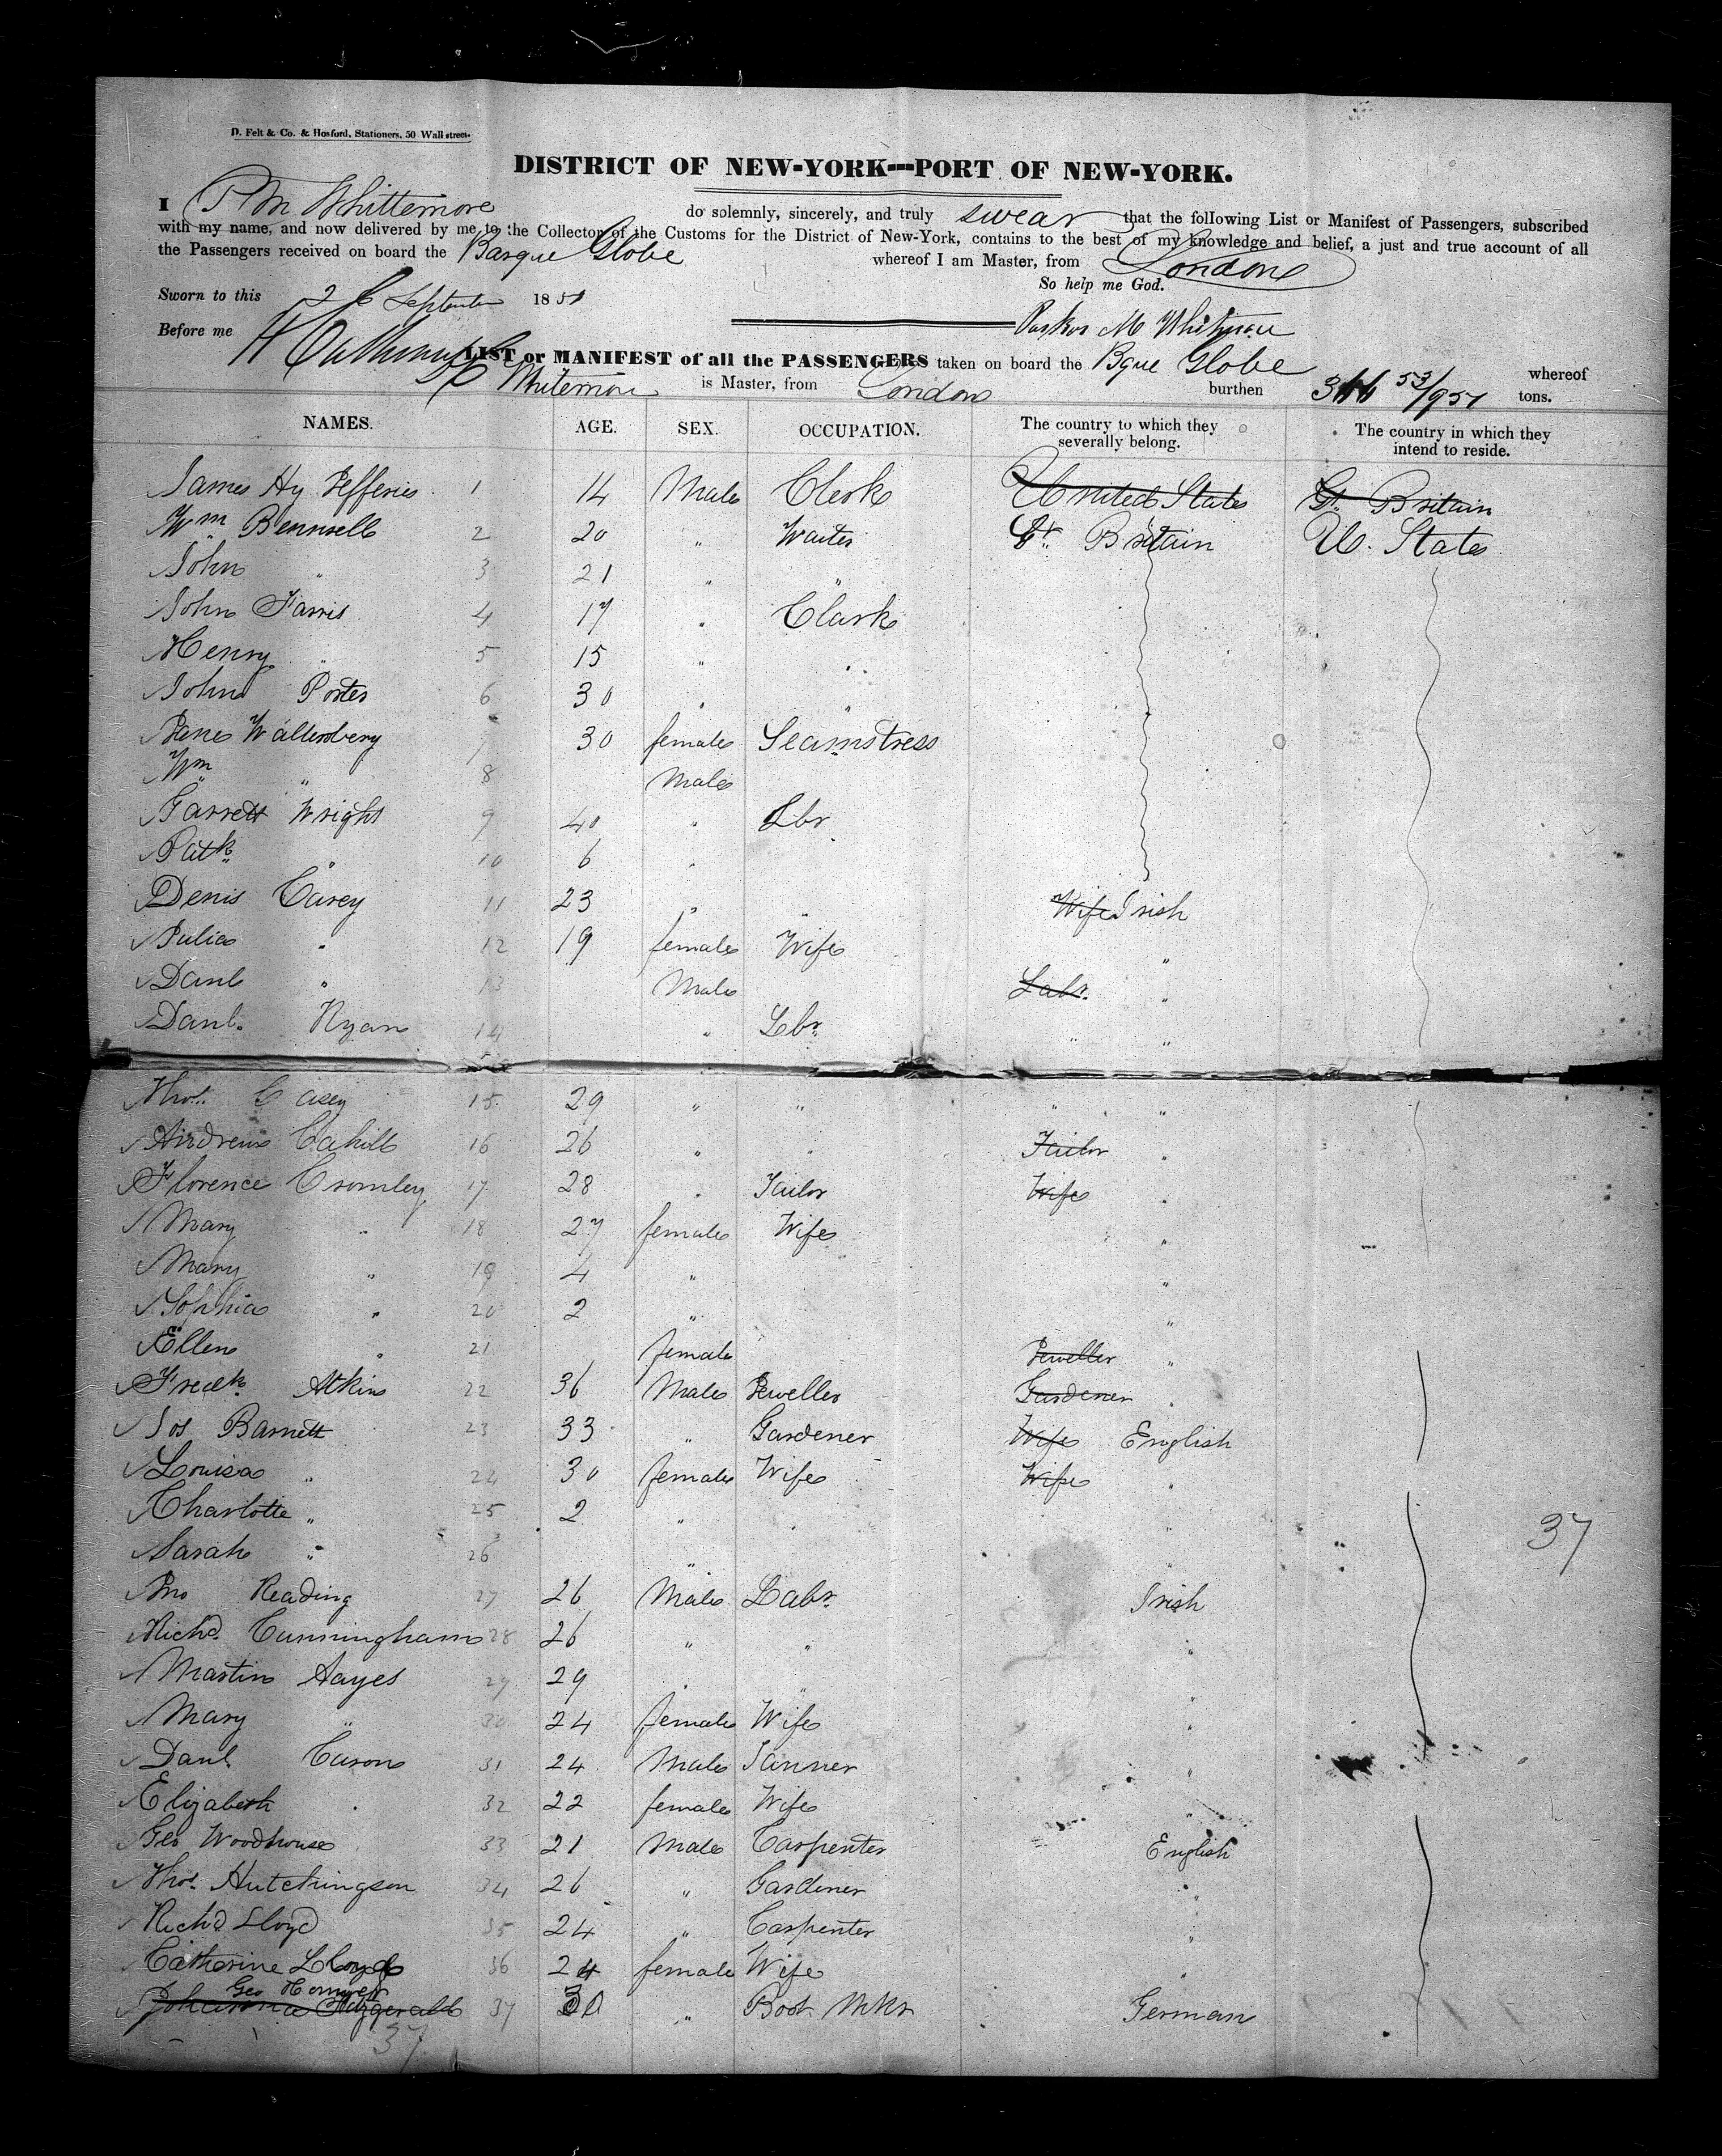 D. Felt & Co. & Hosford, Stationers, 50 Wall street.
DISTRICT OF NEW-YORK---PORT OF NEW-YORK.
I P M Whittemore do solemnly, sincerely, and truly swear that the following List or Manifest of Passengers, subscribed
with my name, and now delivered by me to the Collector of the Customs for the District of New-York, contains to the best of my knowledge and belief, a just and true account of all
the Passengers received on board the Barque Globe whereof I am Master, from London
So help me God.
Sworn to this 26 September 1851
Before me
LIST or MANIFEST of all the PASSENGERS taken on board the Bque Globe whereof
Whitemore is Master, from London burthen tons.
NAMES. AGE. SEX. OCCUPATION. The country to which they severally belong. The country in which they intend to reside.
James Hy Jefferies 1 14 Male Clerk United States Gt. Britain
Wm Bennsell 2 20 " Waiter Gt. Britain U. States
John " 3 21 " "
John Farris 4 17 " Clark
Henry " 5 15 " "
John Porter 6 30 " "
Jane Wallersbery 7 30 female Seamstress
Wm " 8 Male
Garrett Wright 9 40 " Lbr
Patk " 10 6 "
Denis Carey 11 23 " " Wife Irish
Julia " 12 19 female Wife "
Danl " 13 Male Labr. "
Danl. Ryan 14 " Lbr. " "
Thos. Casey 15 29 " " " "
Andrew Cahill 16 26 " " Tailor "
Florence Cromley 17 28 " Tailor Wife "
Mary " 18 27 female Wife "
Mary " 19 4 " "
Sophia " 20 2 " "
Ellen " 21 female Jeweller "
Fredk. Atkins 22 36 Male Jeweller Gardener "
Jos Barnett 23 33 " Gardener Wife English
Louisa " 24 30 female Wife Wife "
Charlotte " 25 2 " " "
Sarah " 26 " "
37
Jno Reading 27 26 Male Labr. Irish
Richd. Cunningham 28 26 " " "
Martin Hayes 29 29 " " "
Mary " 30 24 female Wife "
Danl Curson 31 24 Male Tanner "
Elizabeth " 32 22 female Wife "
Geo Woodhouse 33 21 Male Carpenter English
Thos. Hutchingson 34 26 " Gardener "
Richd Lloyd 35 24 " Carpenter "
Catherine Lloyd 36 24 female Wife "
Geo
Johanna Fitzgerald 37 30 " Boot Mkr German
37